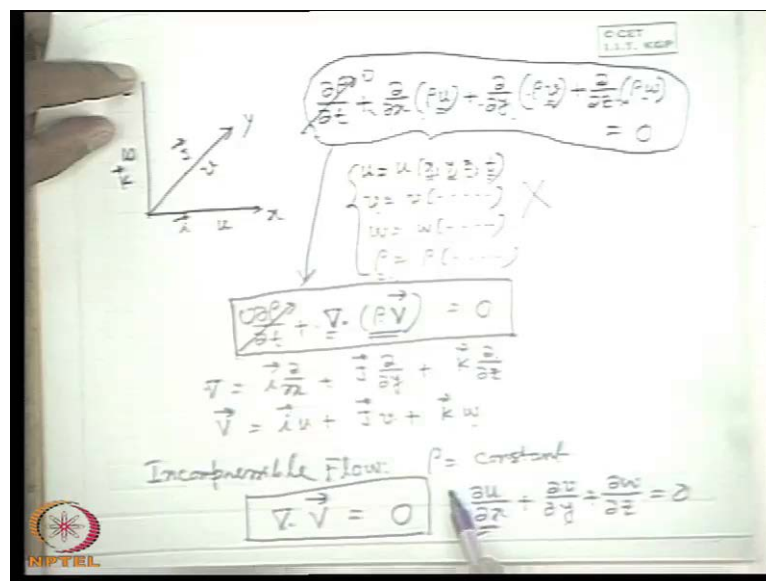 C CET
I.I.T. KGP
∂ρ/∂t ↗0 + ∂/∂x (ρu) + ∂/∂y (ρv) + ∂/∂z (ρw)
= 0
y
w k⃗
j⃗ v
i⃗ u x
u = u (x, y, z, t)
v = v (-----)
w = w (-----)
ρ = ρ (-----)
X
0 ∂ρ/∂t + ∇. (ρV⃗) = 0
∇ = i⃗ ∂/∂x + j⃗ ∂/∂y + k⃗ ∂/∂z
V⃗ = i⃗u + j⃗v + k⃗w
Incompressible Flow: ρ = constant
∇. V⃗ = 0 ∂u/∂x + ∂v/∂y + ∂w/∂z = 0
NPTEL